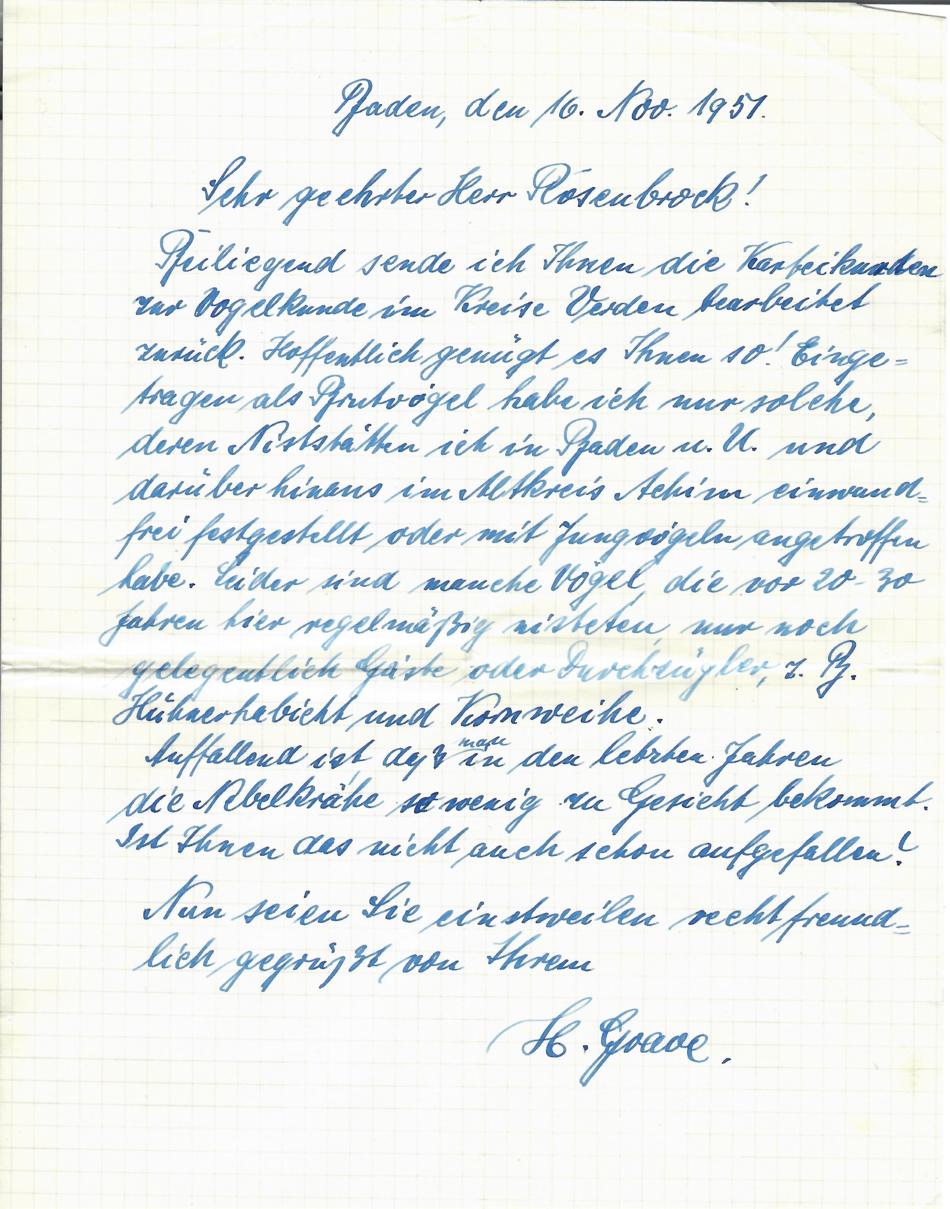 Baden, den 16. Nov. 1951.
Sehr geehrter Herr Rosenbrock!
Beiliegend sende ich Ihnen die Karteikarten
zur Vogelkunde im Kreise Verden bearbeitet
zurück. Hoffentlich genügt es Ihnen so! Einge=
tragen als Brutvögel habe ich nur solche,
deren Niststätten ich in Baden u. U. und
darüber hinaus im Altkreis Achim einwand=
frei festgestellt oder mit Jungvögeln angetroffen
habe. Leider sind manche Vögel, die vor 20-30
Jahren hier regelmäßig nisteten, nur noch
gelegentlich Gäste oder Durchzügler, z. B.
Hühnerhabicht und Kornweihe.
Auffallend ist, daß man in den letzten Jahren
die Nebelkrähe so wenig zu Gesicht bekommt.
Ist Ihnen das nicht auch schon aufgefallen?
Nun seien Sie einstweilen recht freund=
lich gegrüßt von Ihrem
H. Grave.